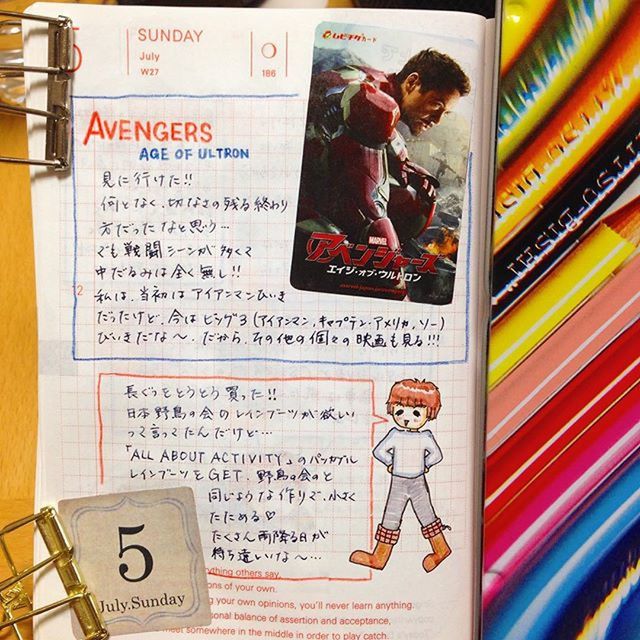 5
SUNDAY
July
W27
186
AVENGERS
AGE OF ULTRON
見に行けた!!
何となく、切なさの残る終わり
方だったなと思う…
でも戦闘シーンが多くて
中だるみは全く無し!!
12
私は、当初はアイアンマンびいき
だったけど、今はビッグ3(アイアンマン、キャプテン・アメリカ、ソー)
びいきだな〜。だから、その他の個々の映画も見る!!!
ムビチケカード
MARVEL
アベンジャーズ
エイジ・オブ・ウルトロン
長ぐつをとうとう買った!!
日本野鳥の会のレインブーツが欲しい
って言ってたんだけど…
「ALL ABOUT ACTIVITY」のパッカブル
レインブーツをGET。野鳥の会のと
同じような作りで、小さく
たためる♡
たくさん雨降る日が
待ち遠いな〜…
5
July.Sunday
rything others say,
ons of your own.
ng your own opinions, you'll never learn anything.
rsonal balance of assertion and acceptance,
meet somewhere in the middle in order to play catch.